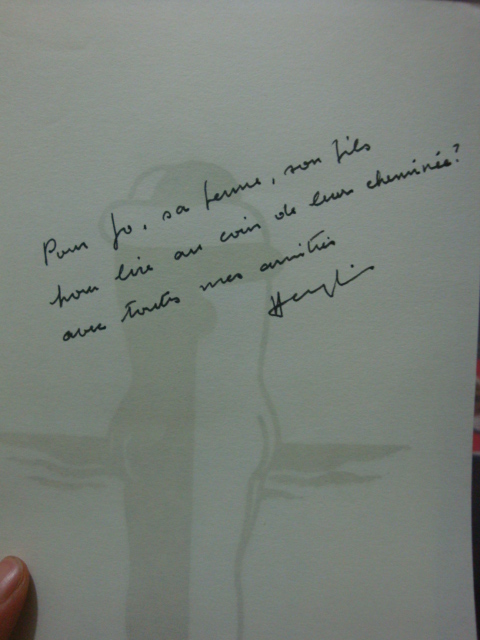 Pour Jo, sa femme, son fils
pour lire au coin de leur cheminée?
avec toutes mes amitiés